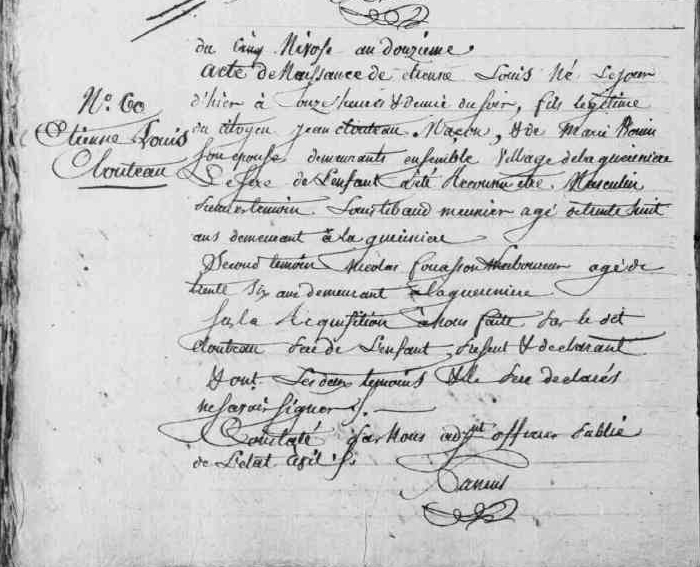 du Cinq Nivose an douzieme
acte de Naissance de etienne Louis Né Le jour
N.o 60
Etienne Louis
Clouteau
d'hier à onze heures & demie du soir, fils legitime
du citoyen jean clouteau Maçon, & de Marie
son epouse demeurants ensemble village de la gueriniere
Le sexe de L'enfant a été Reconnu etre Masculin
Premier temoin Louis meunier agé de trente huit
ans demeurant à la gueriniere
Second temoin Nicolas agé de
trente six ans demeurant à la gueriniere
sur la Requisition à nous faite par le dit
Clouteau pere de L'enfant, present & declarant
& ont Les deux temoins & le pere declarés
ne savoir signer ./.
Constaté par Nous adjnt officier public
de L'etat civil ./.